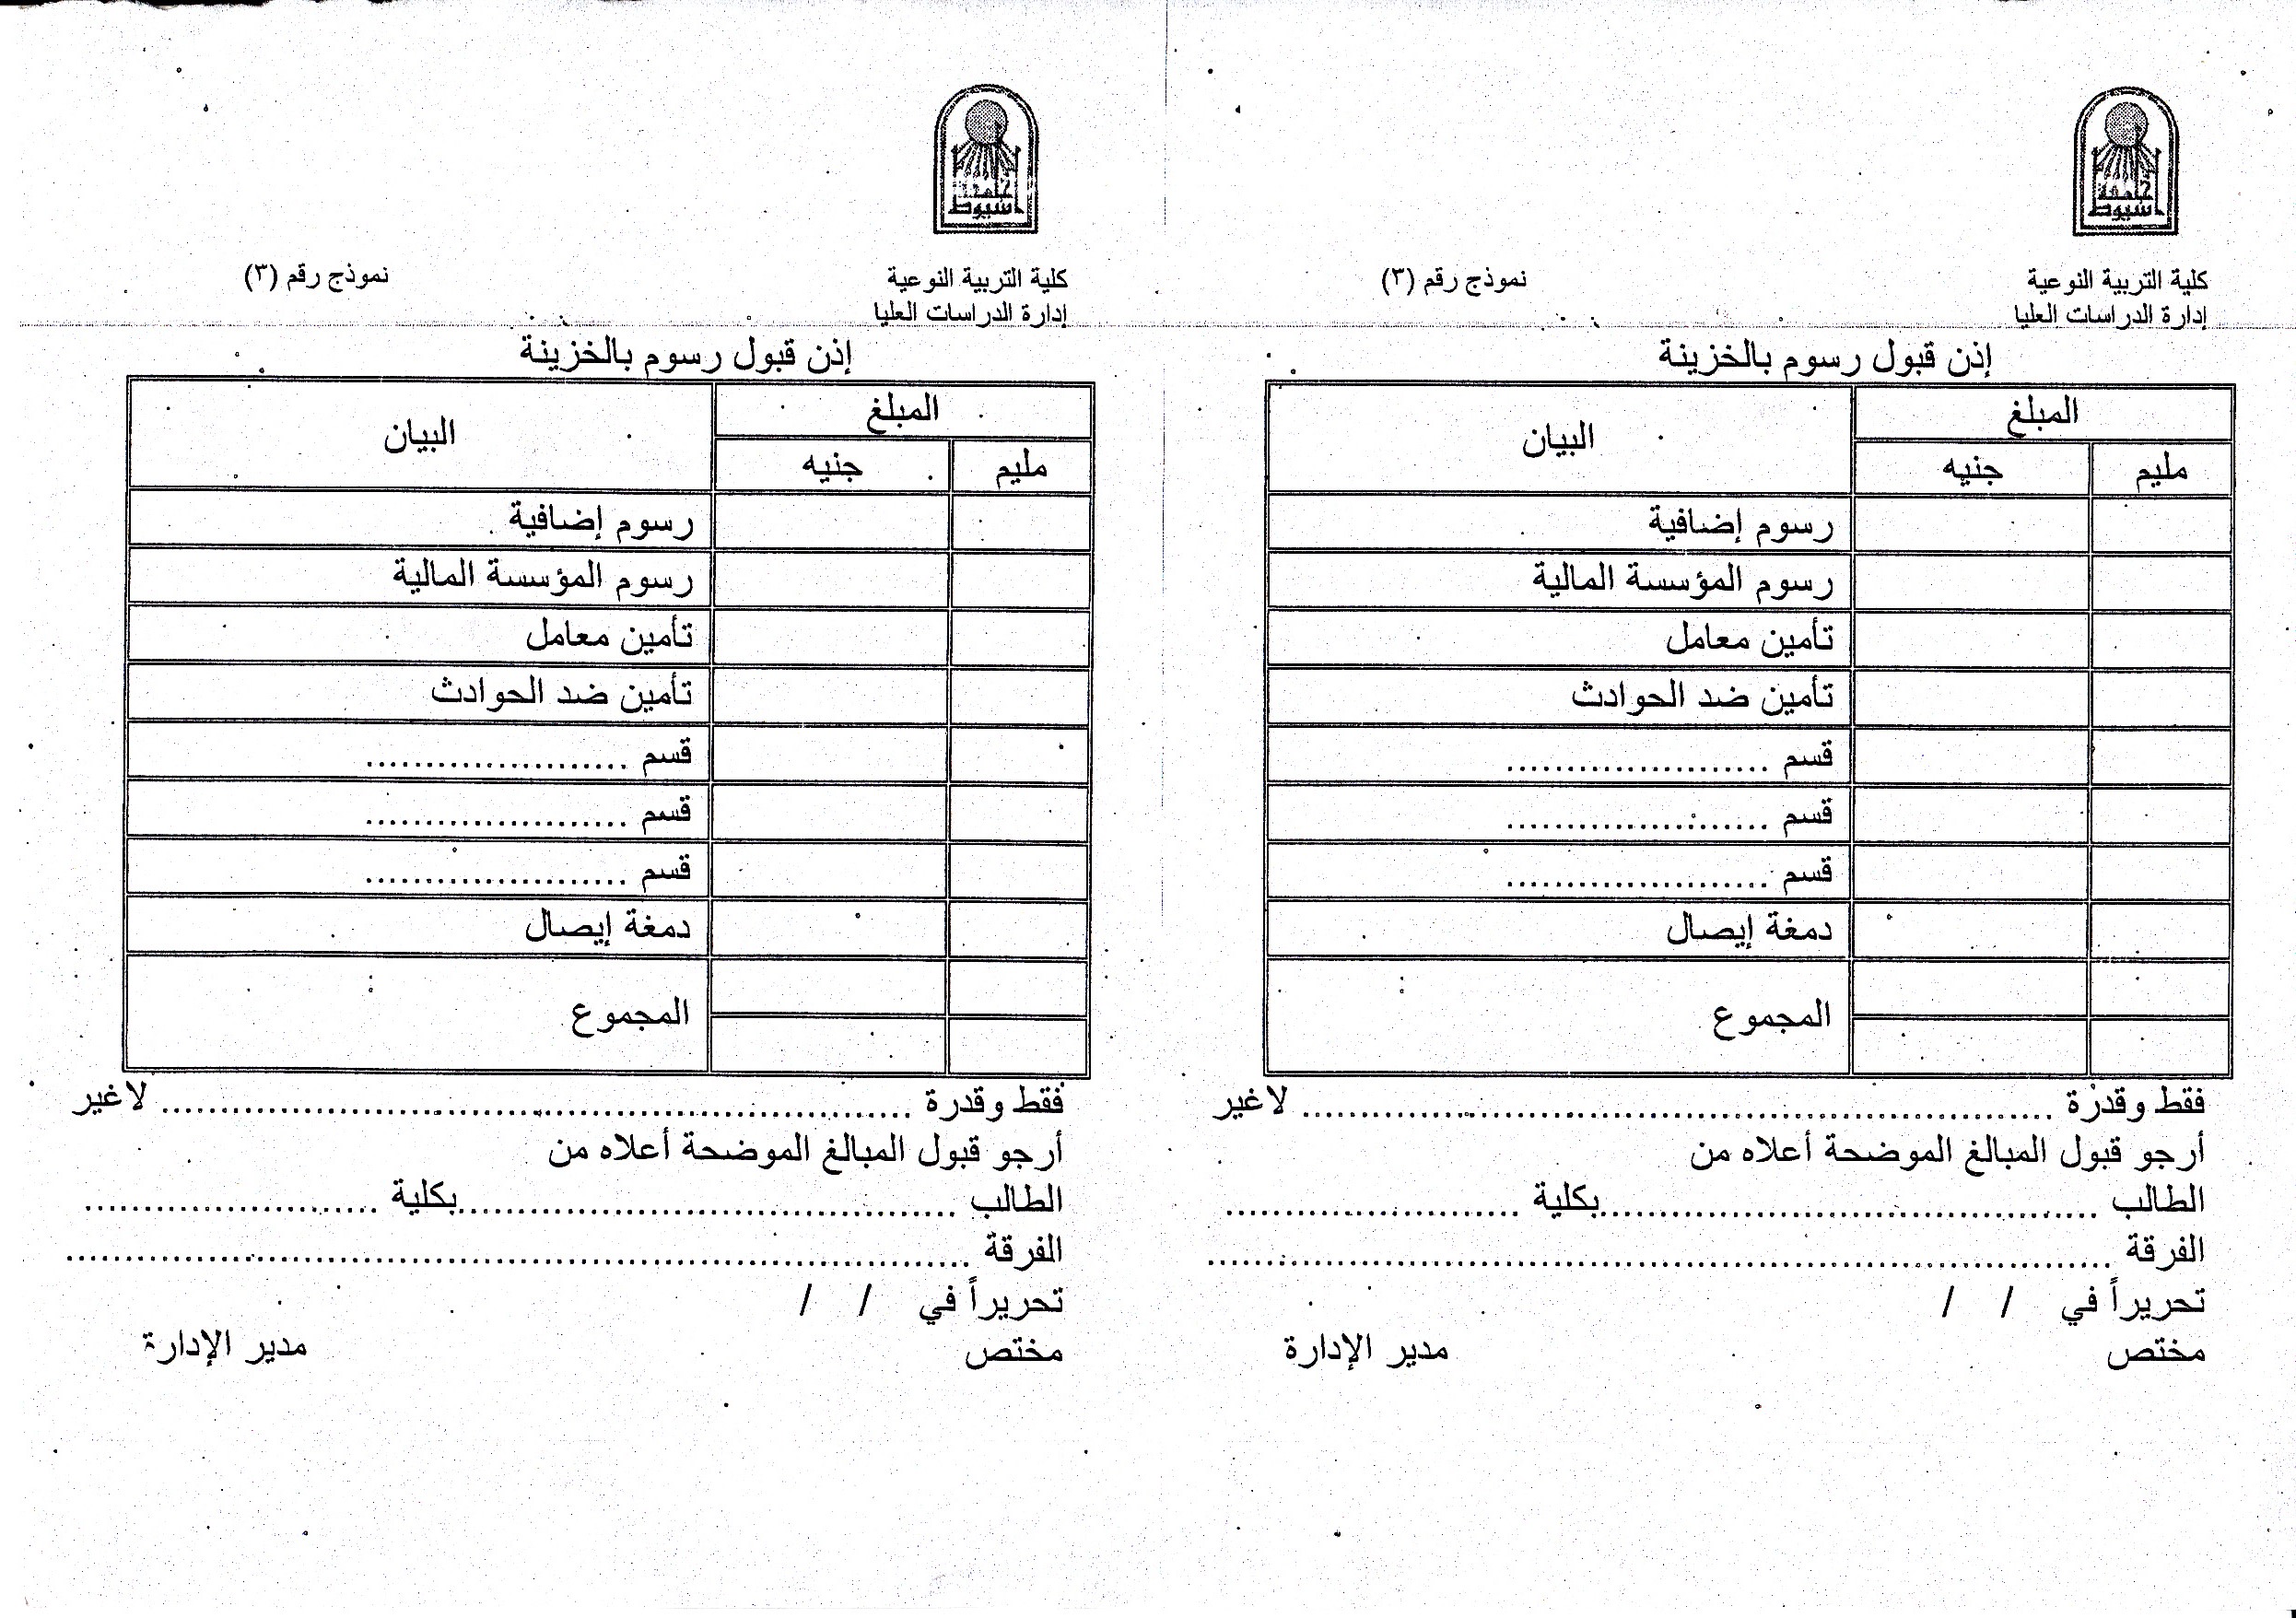 جامعة
أسيوط
كلية التربية النوعية
نموذج رقم (٣)
إدارة الدراسات العليا
إذن قبول رسوم بالخزينة
المبلغ
البيان
مليم جنيه
رسوم إضافية
رسوم المؤسسة المالية
تأمين معامل
تأمين ضد الحوادث
قسم ......................
قسم ......................
قسم ......................
دمغة إيصال
المجموع
فقط وقدرة ................................................................ لاغير
أرجو قبول المبالغ الموضحة أعلاه من
الطالب ..........................................بكلية .........................
الفرقة .............................................................................
تحريراً في / /
مختص مدير الإدارة
جامعة
أسيوط
كلية التربية النوعية
نموذج رقم (٣)
إدارة الدراسات العليا
إذن قبول رسوم بالخزينة
المبلغ
البيان
مليم جنيه
رسوم إضافية
رسوم المؤسسة المالية
تأمين معامل
تأمين ضد الحوادث
قسم ......................
قسم ......................
قسم ......................
دمغة إيصال
المجموع
فقط وقدرة ................................................................ لاغير
أرجو قبول المبالغ الموضحة أعلاه من
الطالب ..........................................بكلية .........................
الفرقة .............................................................................
تحريراً في / /
مختص مدير الإدارة